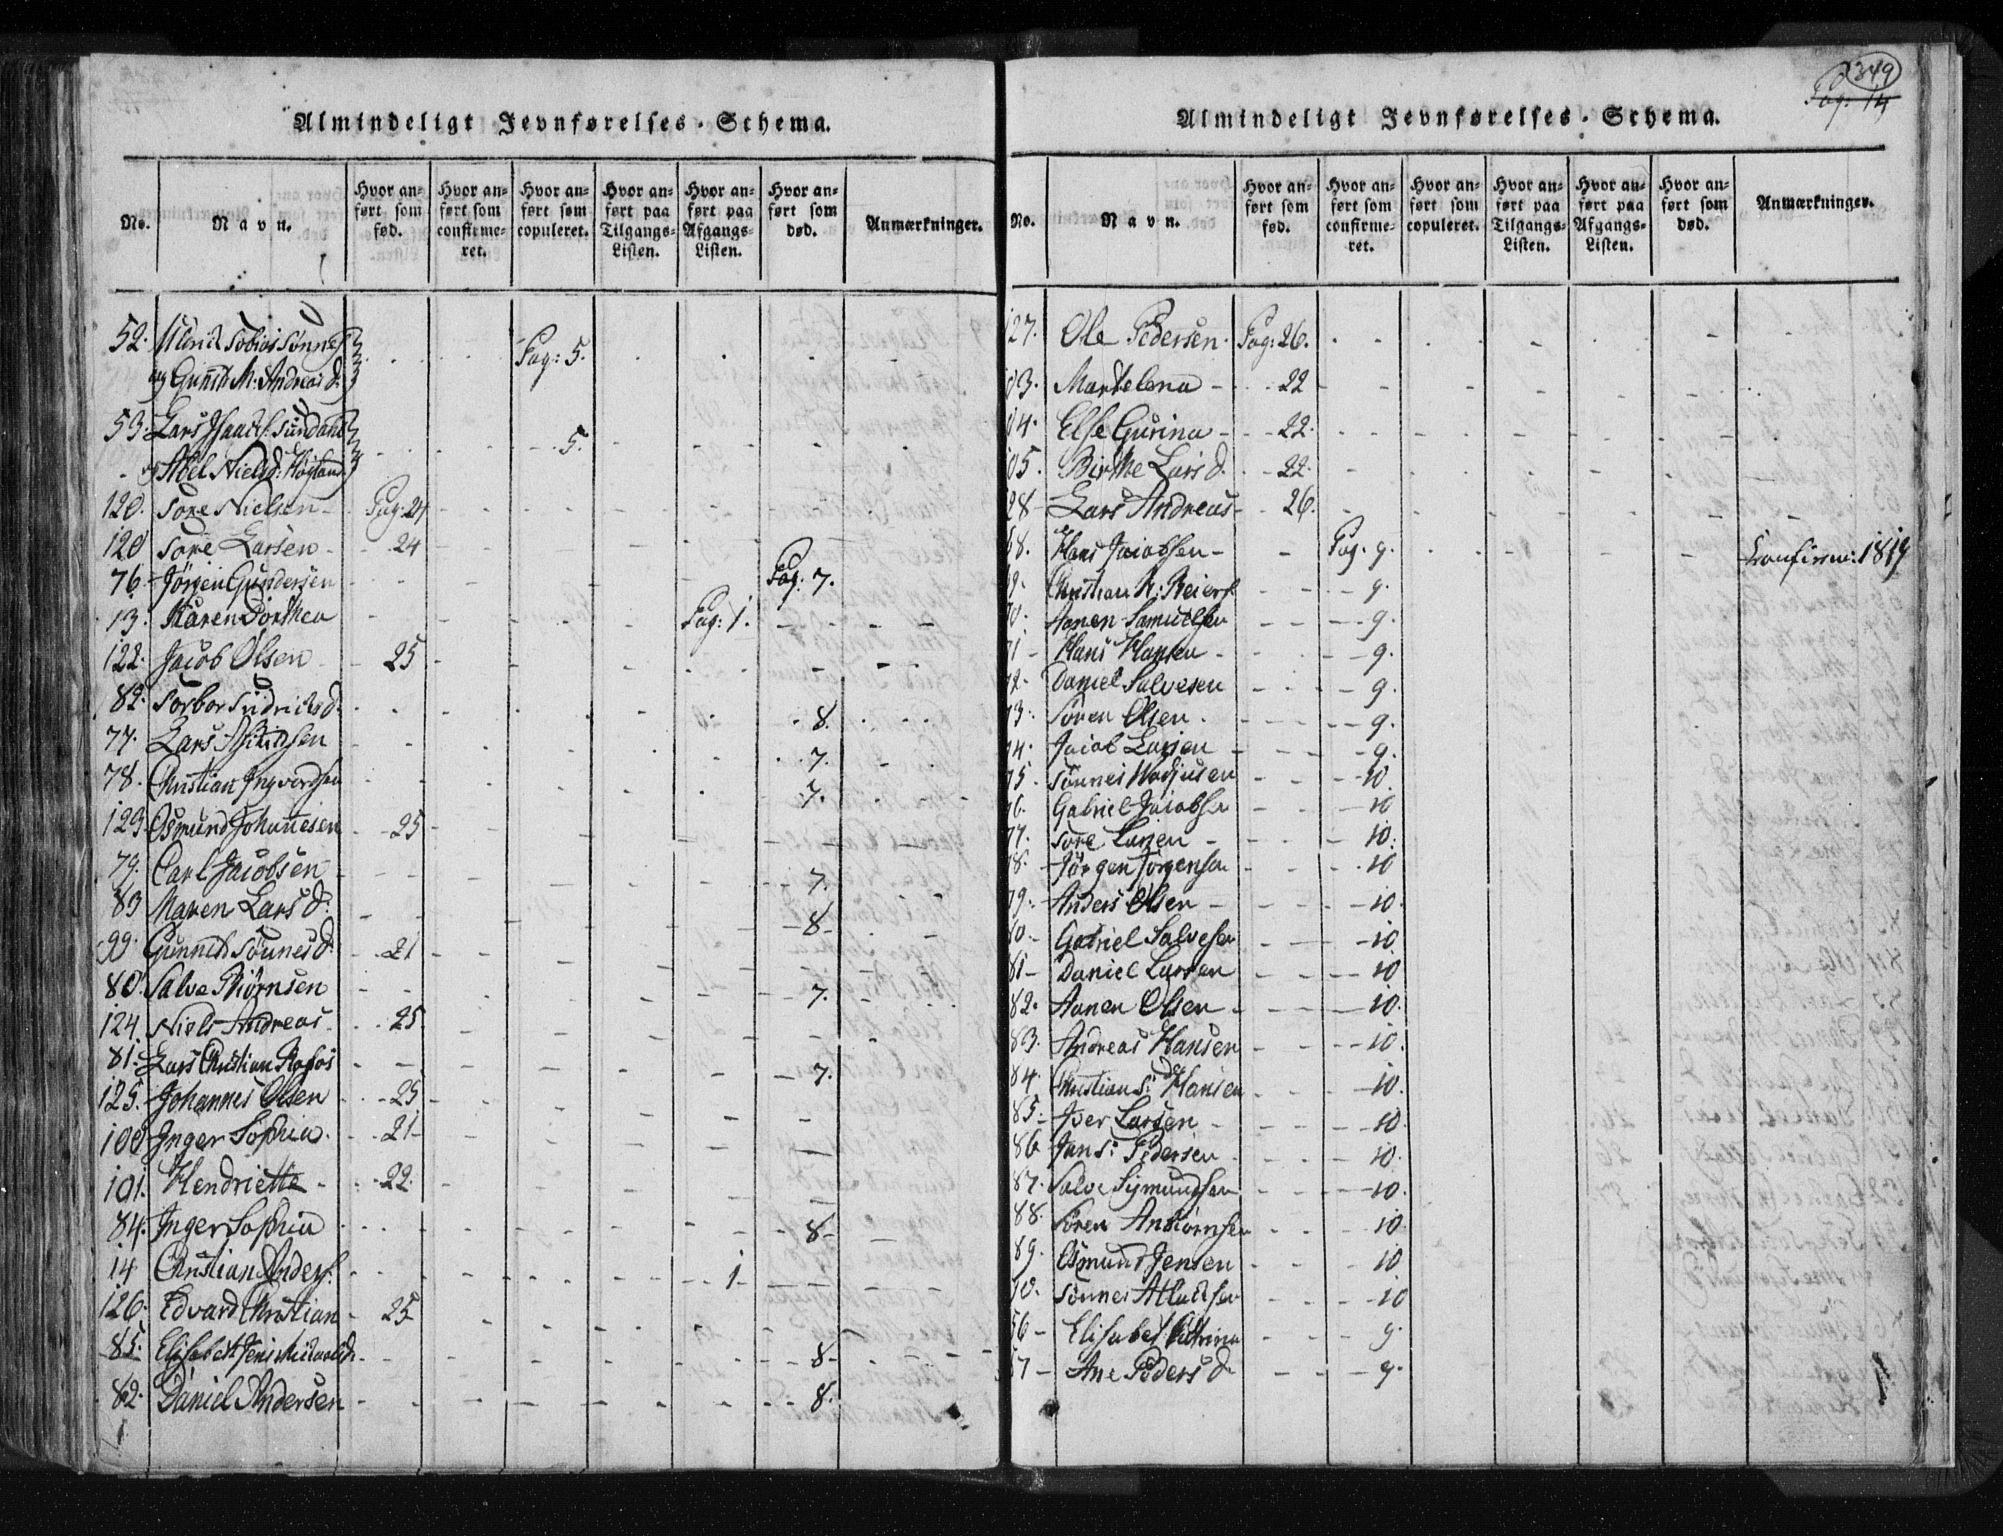 349
Pag: 14
Almindeligt Jevnførelses-Schema.
No. Navn. Hvor anført som fød. Hvor anført som confirmeret. Hvor anført som copuleret. Hvor anført paa Tilgangs-Listen. Hvor anført paa Afgangs-Listen. Hvor anført som død. Anmærkninger.
52. Sønnes Pag: 5.
og M: Andreas d:
53. Lars 5.
og Abel Niels d:
120. Tore Nielsen Pag: 24
120 Tore Larsen 24
76. Jörgen Gundersen Pag: 7.
13. Karen Dorthea Pag: 1.
122. Jacob Olsen 25
82. 8.
77. Lars 7.
78. Christian Ingvordsen 7.
123. Osmund Johannesen 25
79. Carl Jacobsen 7.
83 Maren Lars d: 8
99. Sönnes d: 21
80. Salve Biörnsen 7.
124. Niels Andreas 25
81. Lars Christian 7.
125. Johannes Olsen 25
100 Inger Sophia 21
101. Hendriette 22
84. Inger Sophia 8
14 Christian Anders: 1
126. Edvard Christian 25
85. Elisabeth 8
82. Daniel Andersen 8.
Almindeligt Jevnførelses-Schema.
No. Navn. Hvor anført som fød. Hvor anført som confirmeret. Hvor anført som copuleret. Hvor anført paa Tilgangs-Listen. Hvor anført paa Afgangs-Listen. Hvor anført som død. Anmærkninger.
127. Ole Pedersen Pag: 26.
03. Martelena 22
04. Else Gurina 22.
05. Birthe Lars d. 22
28 Lars Andreas 26.
8. Hans Jacobsen Pag. 9. Confirm: 1819
Christian 9.
0. Aanen Samuelsen 9.
1 Hans Hansen 9.
2 Daniel Salvesen 9.
3. Sören Olsen 9.
4. Jacob Larsen 9.
5. Sönnes 10.
6. Gabriel Jacobsen 10
7. Tore Larsen 10.
8. Jörgen Jörgensen 10
9. Anders Olsen 10.
0. Gabriel Salvesen 10
81 Daniel Larsen 10
82. Aanen Olsen 10.
83. Andreas Hansen 10.
84. Christian S: Hansen 10.
85. Iver Larsen 10
86 Jans: Pedersen 10.
87. Salve Sigmundsen 10.
88. Sören 10
89. Osmund Jensen 10
90. Sönnes 10
56 Elisabet Catrina 9.
57 Ane Peders d. 9.